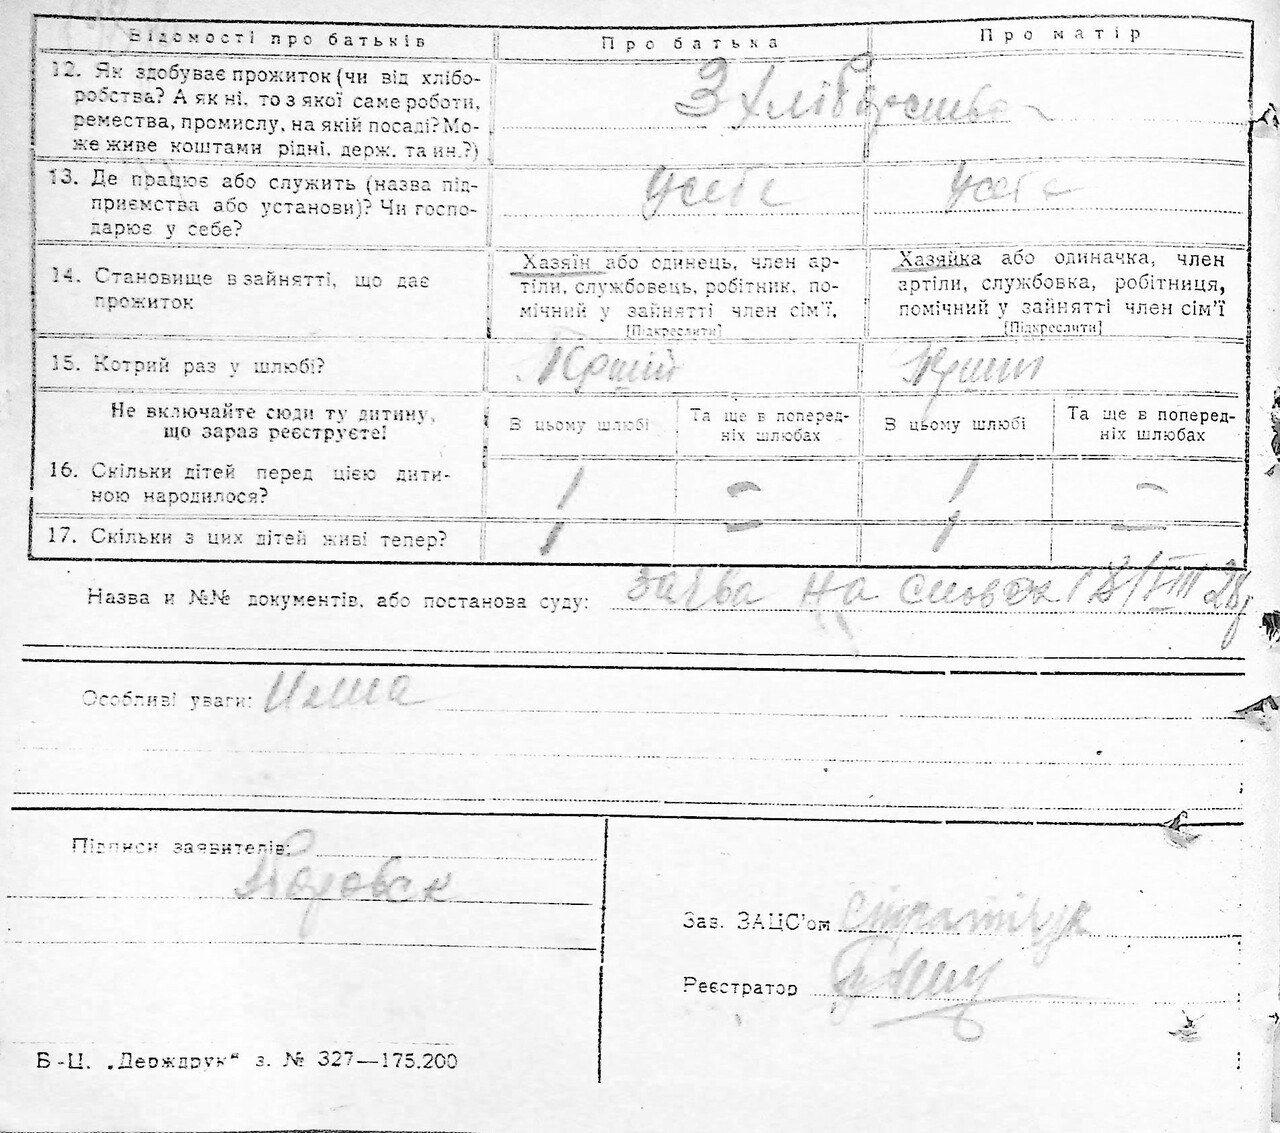 Відомості про батьків Про батька Про матір
12. Як здобуває прожиток (чи від хлібо-
робства? А як ні, то з якої саме роботи,
ремества, промислу, на якій посаді? Мо-
же живе коштами рідні, держ. та ин.?)
З хліборобства
13. Де працює або служить (назва під-
приємства або установи)? Чи госпо-
дарює у себе?
усебе усебе
14. Становище в зайнятті, що дає
прожиток
Хазяїн або одинець, член ар-
тіли, службовець, робітник, по-
мічний у зайнятті член сім'ї.
[Підкреслити]
Хазяйка або одиначка, член
артіли, службовка, робітниця,
помічний у зайнятті член сім'ї
[Підкреслити]
15. Котрий раз у шлюбі?
Не включайте сюди ту дитину,
що зараз реєструєте!
В цьому шлюбі
Та ще в поперед-
ніх шлюбах
В цьому шлюбі
Та ще в поперед-
ніх шлюбах
16. Скільки дітей перед цією дити-
ною народилося?
1 — 1 —
17. Скільки з цих дітей живі тепер?
1 — 1 —
Назва и №№ документів, або постанова суду: заява на 18/VIII 28
Особливі уваги:
Підписи заявителів:
Зав. ЗАЦС'ом
Реєстратор
Б-Ц. „Держдрук“ з. № 327—175.200